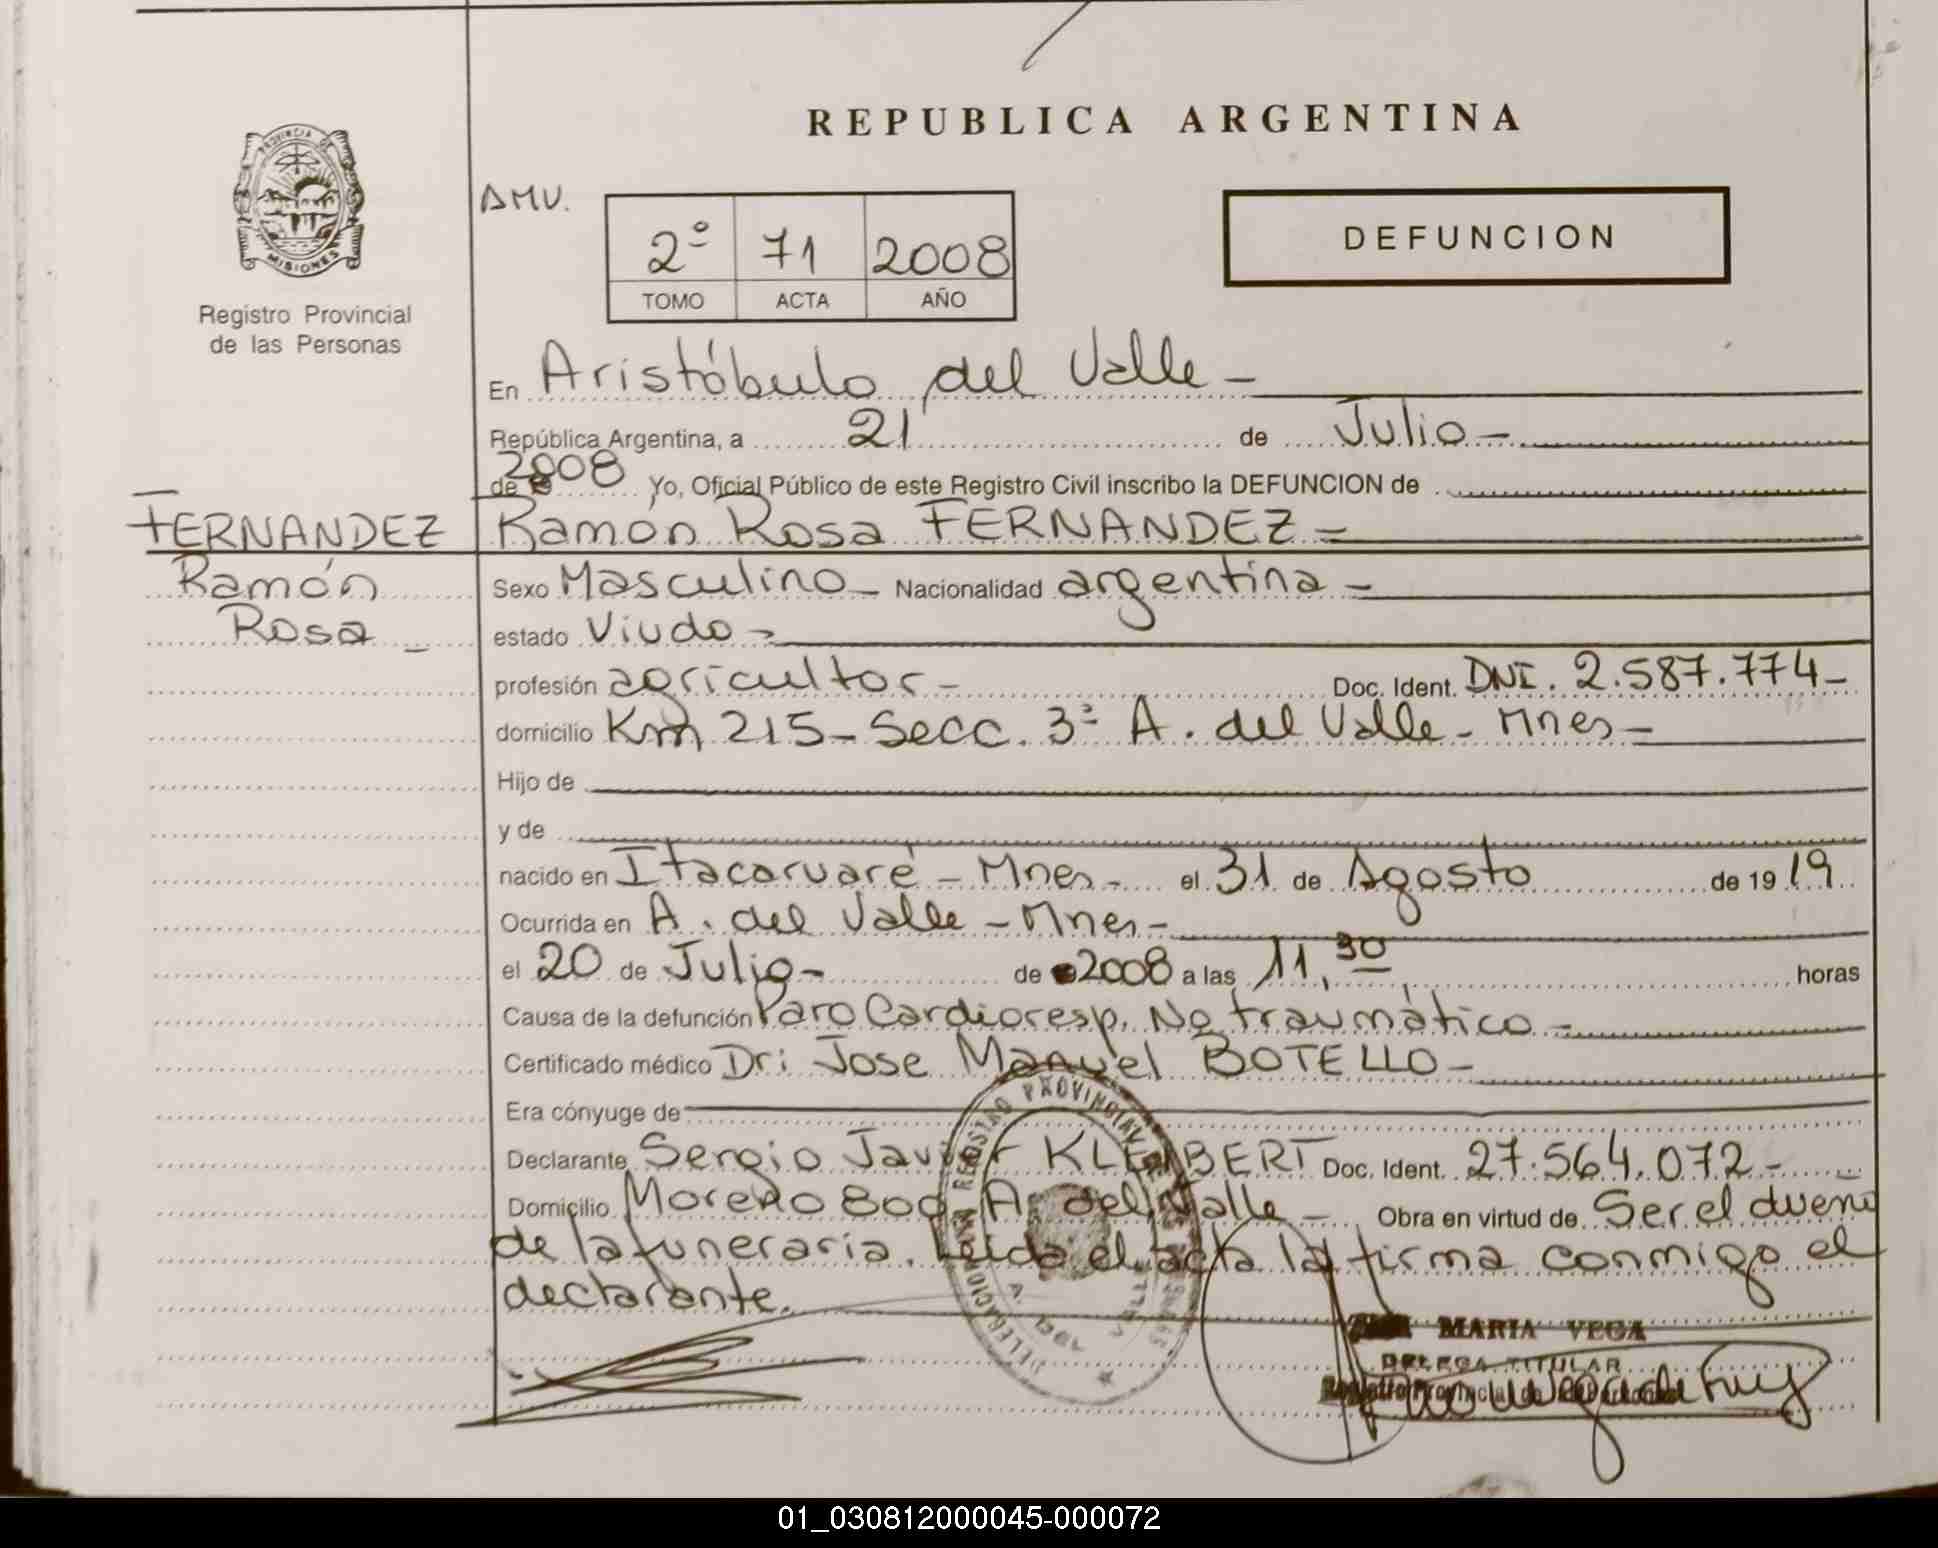 REPUBLICA ARGENTINA
PROVINCIA DE MISIONES
Registro Provincial
de las Personas
AMV.
2º 71 2008
TOMO ACTA AÑO
DEFUNCION
En Aristóbulo del Valle -
República Argentina, a 21 de Julio -
de 2008 Yo, Oficial Público de este Registro Civil inscribo la DEFUNCION de
FERNANDEZ
Ramón
Rosa -
Ramón Rosa FERNANDEZ =
Sexo Masculino - Nacionalidad argentina -
estado Viudo -
profesión agricultor - Doc. Ident. DNI. 2.587.774 -
domicilio Km 215 - Secc. 3ª A. del Valle - Mnes -
Hijo de
y de
nacido en Itacaruaré - Mnes - el 31 de Agosto de 1919
Ocurrida en A. del Valle - Mnes -
el 20 de Julio - de 2008 a las 11,30 horas
Causa de la defunción Paro Cardioresp. No traumático -
Certificado médico Dr: Jose Manuel BOTELLO -
Era cónyuge de
Declarante Sergio Javier Doc. Ident. 27.564.072 -
Domicilio Moreno 800 A. del Valle - Obra en virtud de Ser el dueño
de la funeraria. Leída el acta la firma conmigo el
declarante.
MARIA VEGA
DELEGA TITULAR
Registro Provincial de las Personas
01_030812000045-000072